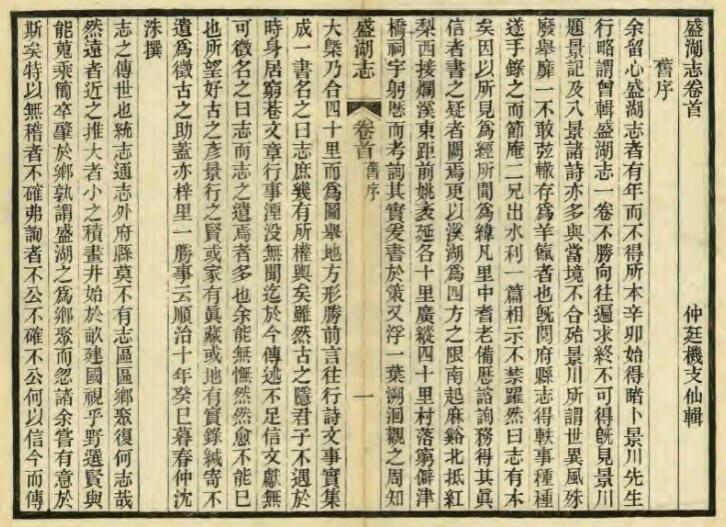 盛湖志卷首
舊序
仲廷機支仙輯
余留心盛湖志者有年而不得所本辛卯始得睹卜景川先生
行略謂曾輯盛湖志一卷不勝向往遍求終不可得旣見景川
題景記及八景諸詩亦多與當境不合殆景川所謂世異風殊
廢舉靡一不敢弦轍存爲羊餼者也旣閱府縣志得軼事種種
遂手錄之而節庵二兄出水利一篇相示不禁躍然曰志有本
矣因以所見爲經所聞爲緯凡里中耆老備歴諮詢務得其眞
信者書之疑者闕焉更以溪湖爲四方之限南起麻谿北抵紅
梨西接爛溪東距前姚袤延各十里廣縱四十里村落窮僻津
橋祠宇躬歴而考詢其實爰書於策又浮一葉溯洄觀之周知
盛湖志
卷首
舊序
一
大槩乃合四十里而爲圖舉地方形勝前言往行詩文事實集
成一書名之曰志庶幾有所權輿矣雖然古之隱君子不遇於
時身居窮巷文章行事湮没無聞迄於今傳述不足信文獻無
可徵名之曰志而志之遺焉者多也余能無憮然然愈不能已
也所望好古之彦景行之賢或家有眞藏或地有實錄緘寄不
遺爲徵古之助蓋亦梓里一勝事云順治十年癸巳暮春仲沈
洙撰
志之傳世也統志通志外府縣莫不有志區區鄉聚復何志哉
然遠者近之推大者小之積畫井始於畝建國視乎野選賢與
能蒐乘簡卒肇於鄉孰謂盛湖之爲鄉聚而忽諸余嘗有意於
斯矣特以無稽者不確弗詢者不公不確不公何以信今而傳